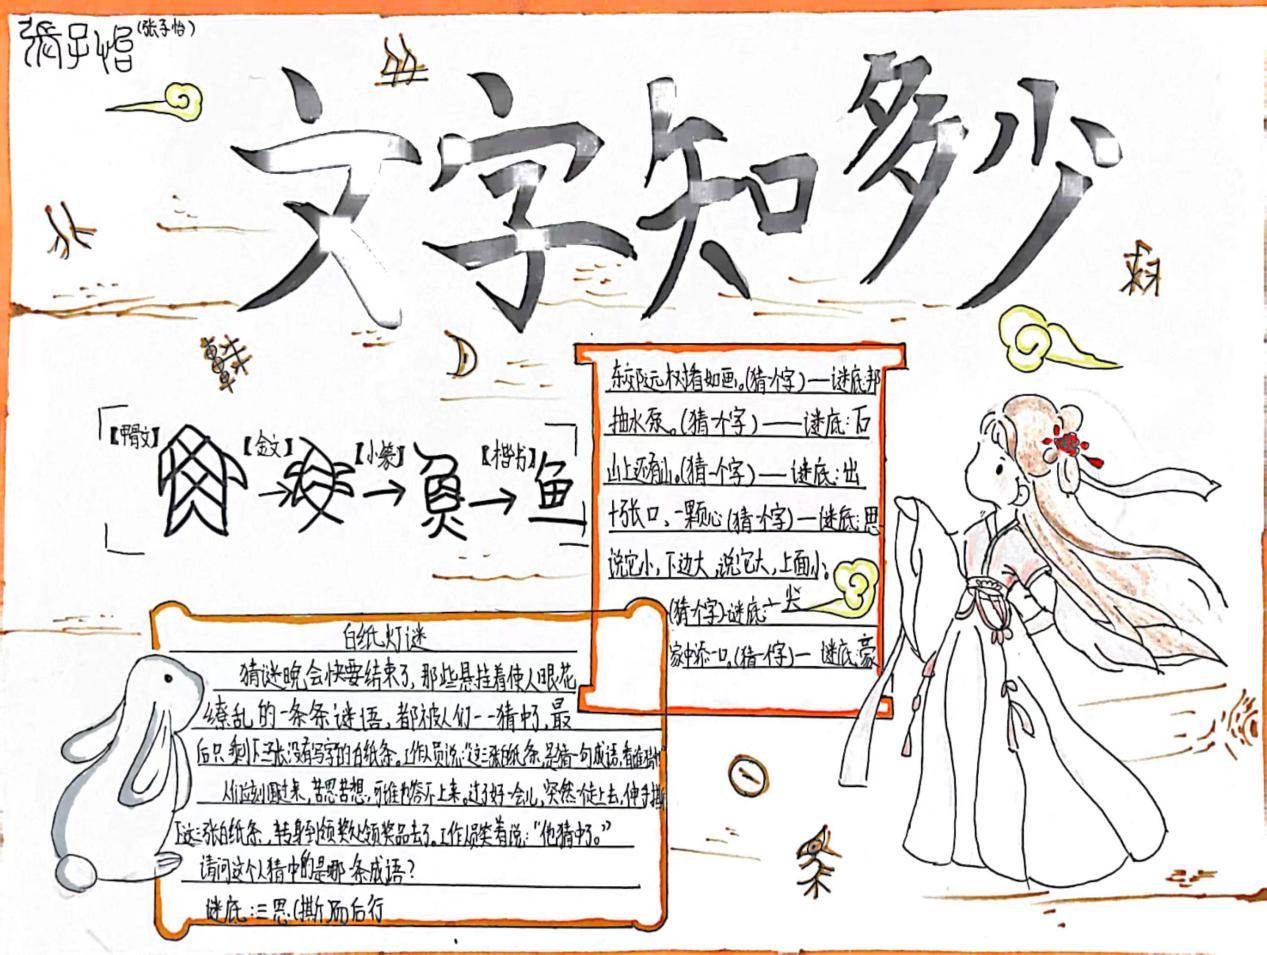 張子怡(张子怡)
文字知多少
【甲骨文】
【金文】
【小篆】
【楷书】
鱼
东郊远树看如画。(猜一个字)——谜底:邦
抽水泵。(猜一个字)——谜底:石
山上还有山。(猜一个字)——谜底:出
十张口、一颗心(猜一个字)—谜底:思
说它小,下边大,说它大,上面小。
(猜一个字)谜底—尖
家中添一口。(猜一个字)— 谜底:豪
白纸灯谜
猜谜晚会快要结束了,那些悬挂着使人眼花
缭乱的一条条谜语,都被人们一一猜中了,最
后只剩下三张没有写字的白纸条。工作员说:“这三张白纸条,是猜一句成语,看谁猜中”
人们立刻围过来,苦思苦想,可谁也答不上来。过了好一会儿,突然一个人走上去,伸手撕
下这三张白纸条,转身到领奖处领奖品去了。工作员笑着说:“他猜中了。”
请问这个人猜中的是哪一条成语?
谜底:三思(撕)而后行